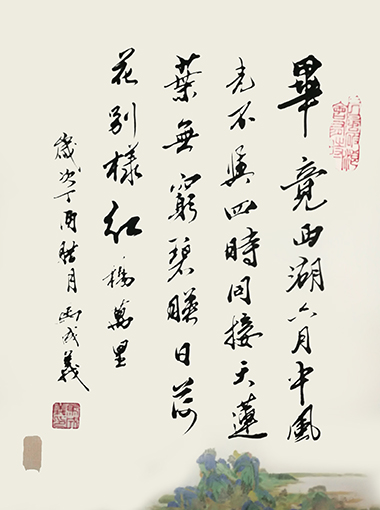 畢竟西湖六月中風
光不與四時同接天蓮
葉無窮碧映日荷
花別樣紅 楊萬里
歲次丁酉腊月成義